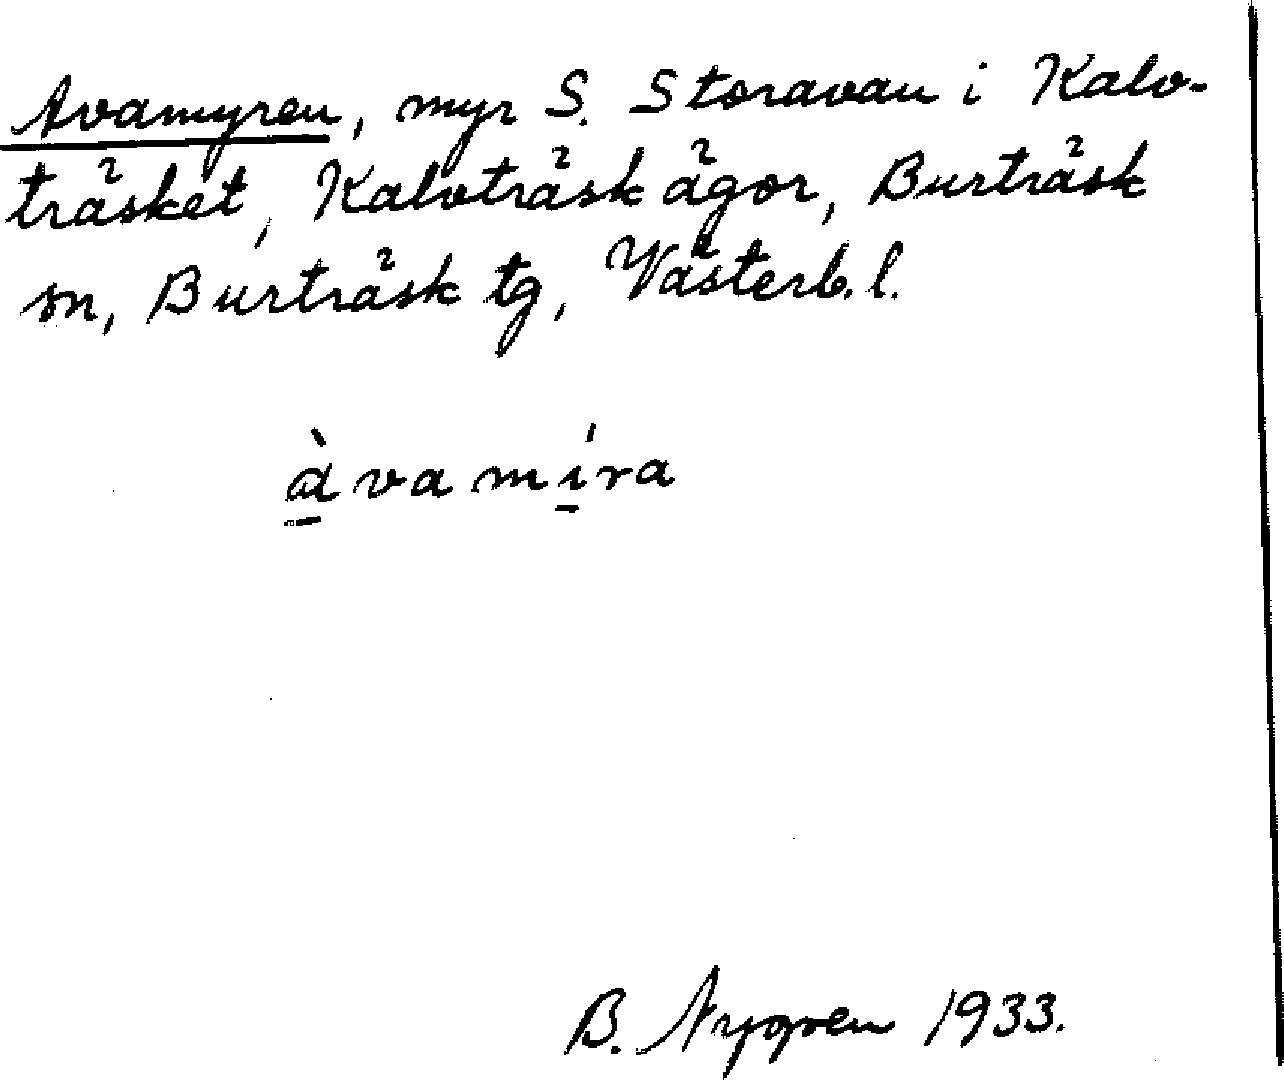 Avamyren, myr S. Storavan i Kalv-
träsket, Kalvträsk ägor, Burträsk
sn, Burträsk tg, Västerb. l.
àvamíra
B. Nygren 1933.